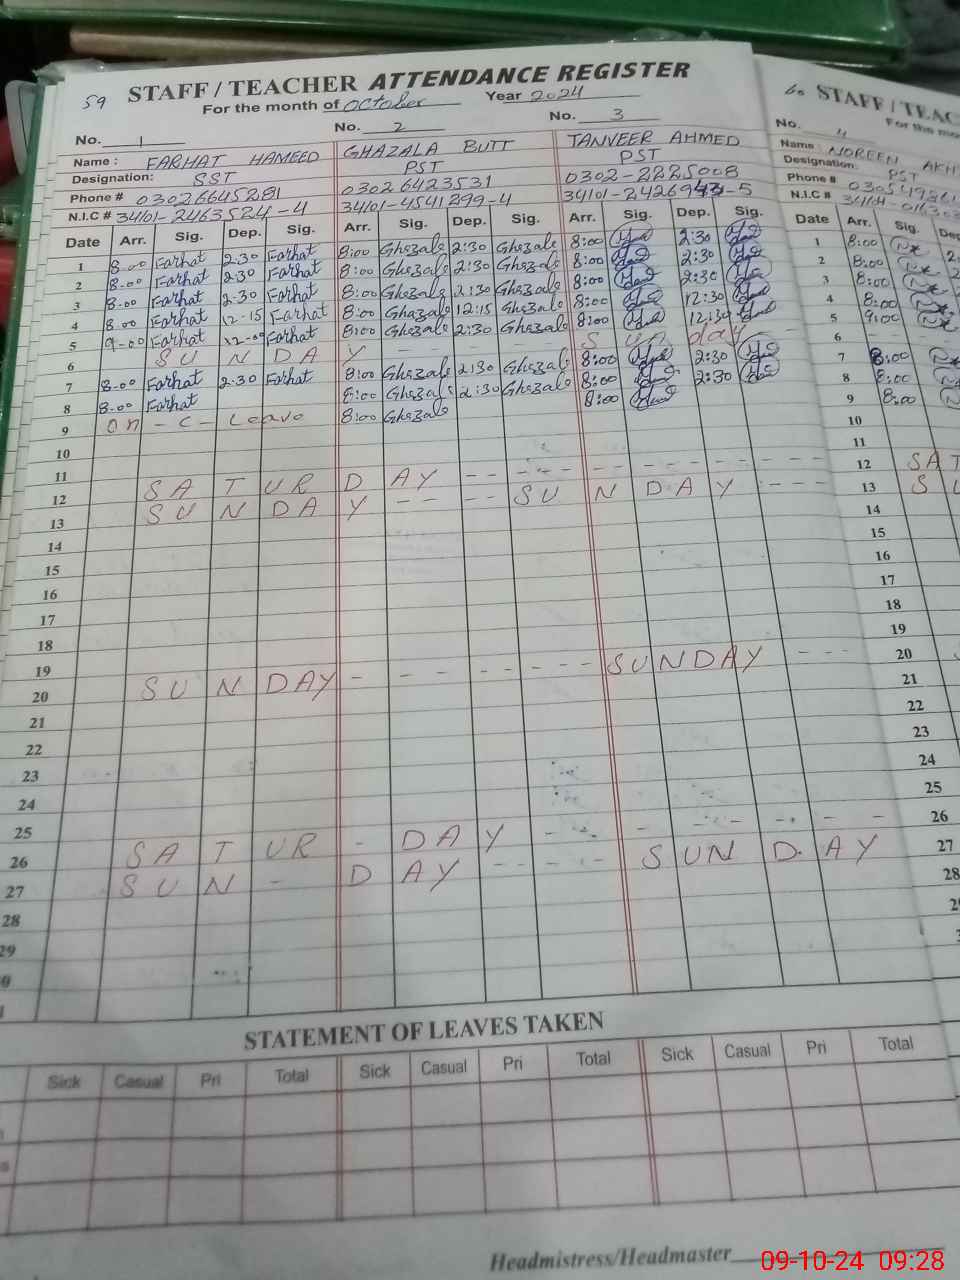 59 STAFF / TEACHER ATTENDANCE REGISTER
For the month of October Year 2024
No. 1 No. 2 No. 3
Name : FARHAT HAMEED GHAZALA BUTT TANVEER AHMED
Designation: SST PST PST
Phone # 03026645281 03026423531 0302-2225008
N.I.C # 34101-2463524-4 34101-4541299-4
Date Arr. Sig. Dep. Sig. Arr. Sig. Dep. Sig. Arr. Sig. Dep. Sig.
1 8-00 Farhat 2.30 Farhat 8:00 Ghazala 2:30 Ghazala 8:00 2:30
2 8-00 Farhat 2.30 Farhat 8:00 Ghazala 2:30 Ghazala 8:00 2:30
3 8-00 Farhat 2-30 Farhat 8:00 Ghazala 2:30 Ghazala 8:00 2:30
4 8.00 Farhat 12-15 Farhat 8:00 Ghazala 12:15 Ghazala 8:00 12:30
5 9-00 Farhat Farhat 8:00 Ghazala 2:30 Ghazala 8:00 12:30
6 S U N D A Y - - - - Sun day
7 8-00 Farhat 2.30 Farhat 8:00 Ghazala 2:30 Ghazala 8:00 2:30
8 8-00 Farhat 8:00 Ghazala 2:30 Ghazala 8:00 2:30
9 On - C - Leave 8:00 Ghazala 8:00
10
11
12 S A T U R D A Y - - - - - - - - - - -
13 S U N D A Y - - - S U N D A Y - - -
14
15
16
17
18
19
20 S U N D A Y - - - - - - - S U N D A Y
21
22
23
24
25
26 S A T U R - D A Y - - - - - - -
27 S U N - D A Y - - - - S U N D A Y
28
29
0
STATEMENT OF LEAVES TAKEN
Sick Casual Pri Total Sick Casual Pri Total Sick Casual Pri Total
Headmistress/Headmaster
60 STAFF / TEAC
For the mo
No. 4
Name : NOREEN AKH
Designation: PST
Phone #
N.I.C #
Date Arr. Sig. Dep
1 8:00
2 8:00
3 8:00
4 8:00
5 9:00
6
7 8:00
8 8:00
9 8:00
10
11
12 SAT
13 S U
14
15
16
17
18
19
20
21
22
23
24
25
26
27
28
09-10-24 09:28